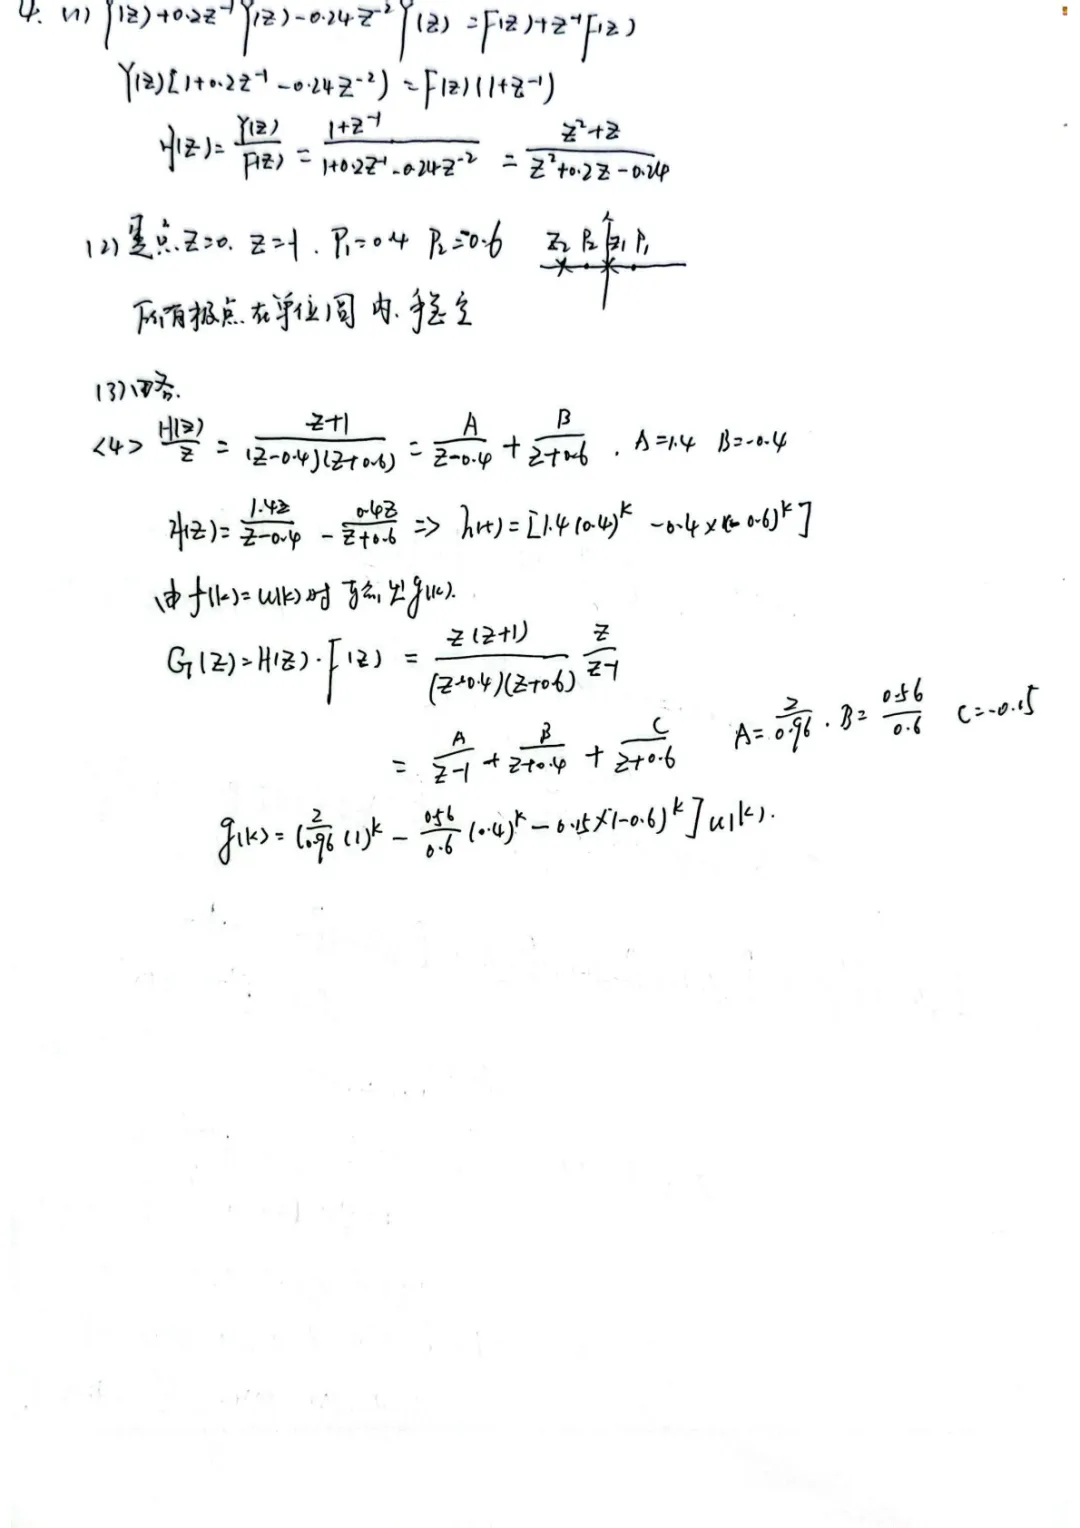 4. (1) Y(z)+0.2z⁻¹Y(z)-0.24z⁻²Y(z)=F(z)+z⁻¹F(z)
Y(z)[1+0.2z⁻¹-0.24z⁻²)=F(z)(1+z⁻¹)
H(z)=Y(z)/F(z)=(1+z⁻¹)/(1+0.2z⁻¹-0.24z⁻²)=(z²+z)/(z²+0.2z-0.24)
(2) 零点.z=0. z=-1. P₁=0.4 P₂=-0.6 z₂ P₂ z₁ P₁
所有极点在单位圆内.稳定
(3)略.
<4> H(z)/z=(z+1)/((z-0.4)(z+0.6))=A/(z-0.4)+B/(z+0.6). A=1.4 B=-0.4
H(z)=1.4z/(z-0.4)-0.4z/(z+0.6)=>h(t)=[1.4(0.4)ᵏ-0.4×(-0.6)ᵏ]
由f(k)=u(k)时 g(k).
G(z)=H(z)·F(z)=z(z+1)/((z+0.4)(z+0.6)) z/(z-1)
=A/(z-1)+B/(z+0.4)+C/(z+0.6) A=2/0.96. B=0.56/0.6 C=-0.15
g(k)=(2/0.96(1)ᵏ-0.56/0.6(0.4)ᵏ-0.15×(-0.6)ᵏ]u(k).